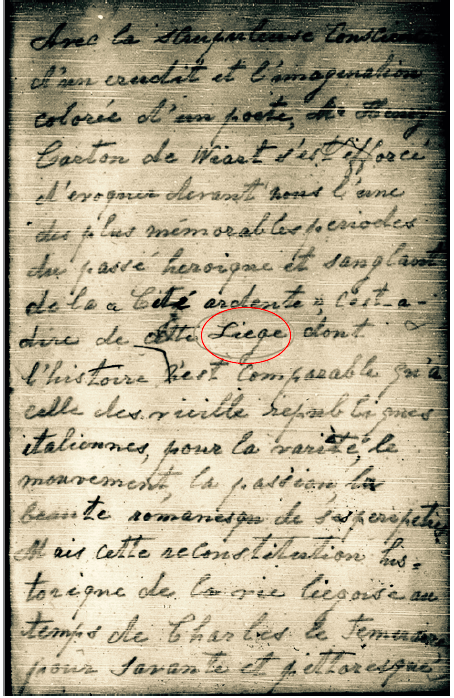 Avec la scrupuleuse Conscience
d'un erudit et l'imagination
colorée d'un poete, Mr Henry
Carton de Wiart s'est efforcé
d'evoquer devant nous l'une
des plus mémorables periodes
du passé heroique et sanglant
de la « Cité ardente », c'est-a-
dire de cette Liege dont
l'histoire n'est Comparable qu'a
celle des vieille republiques
italiennes, pour la varieté, le
mouvement, la passion, la
beaute romanesque de ses peripeties
Mais cette reconstitution his-
torique de la vie liegoise au
temps de Charles le Temeraire
pour savante et pittoresque